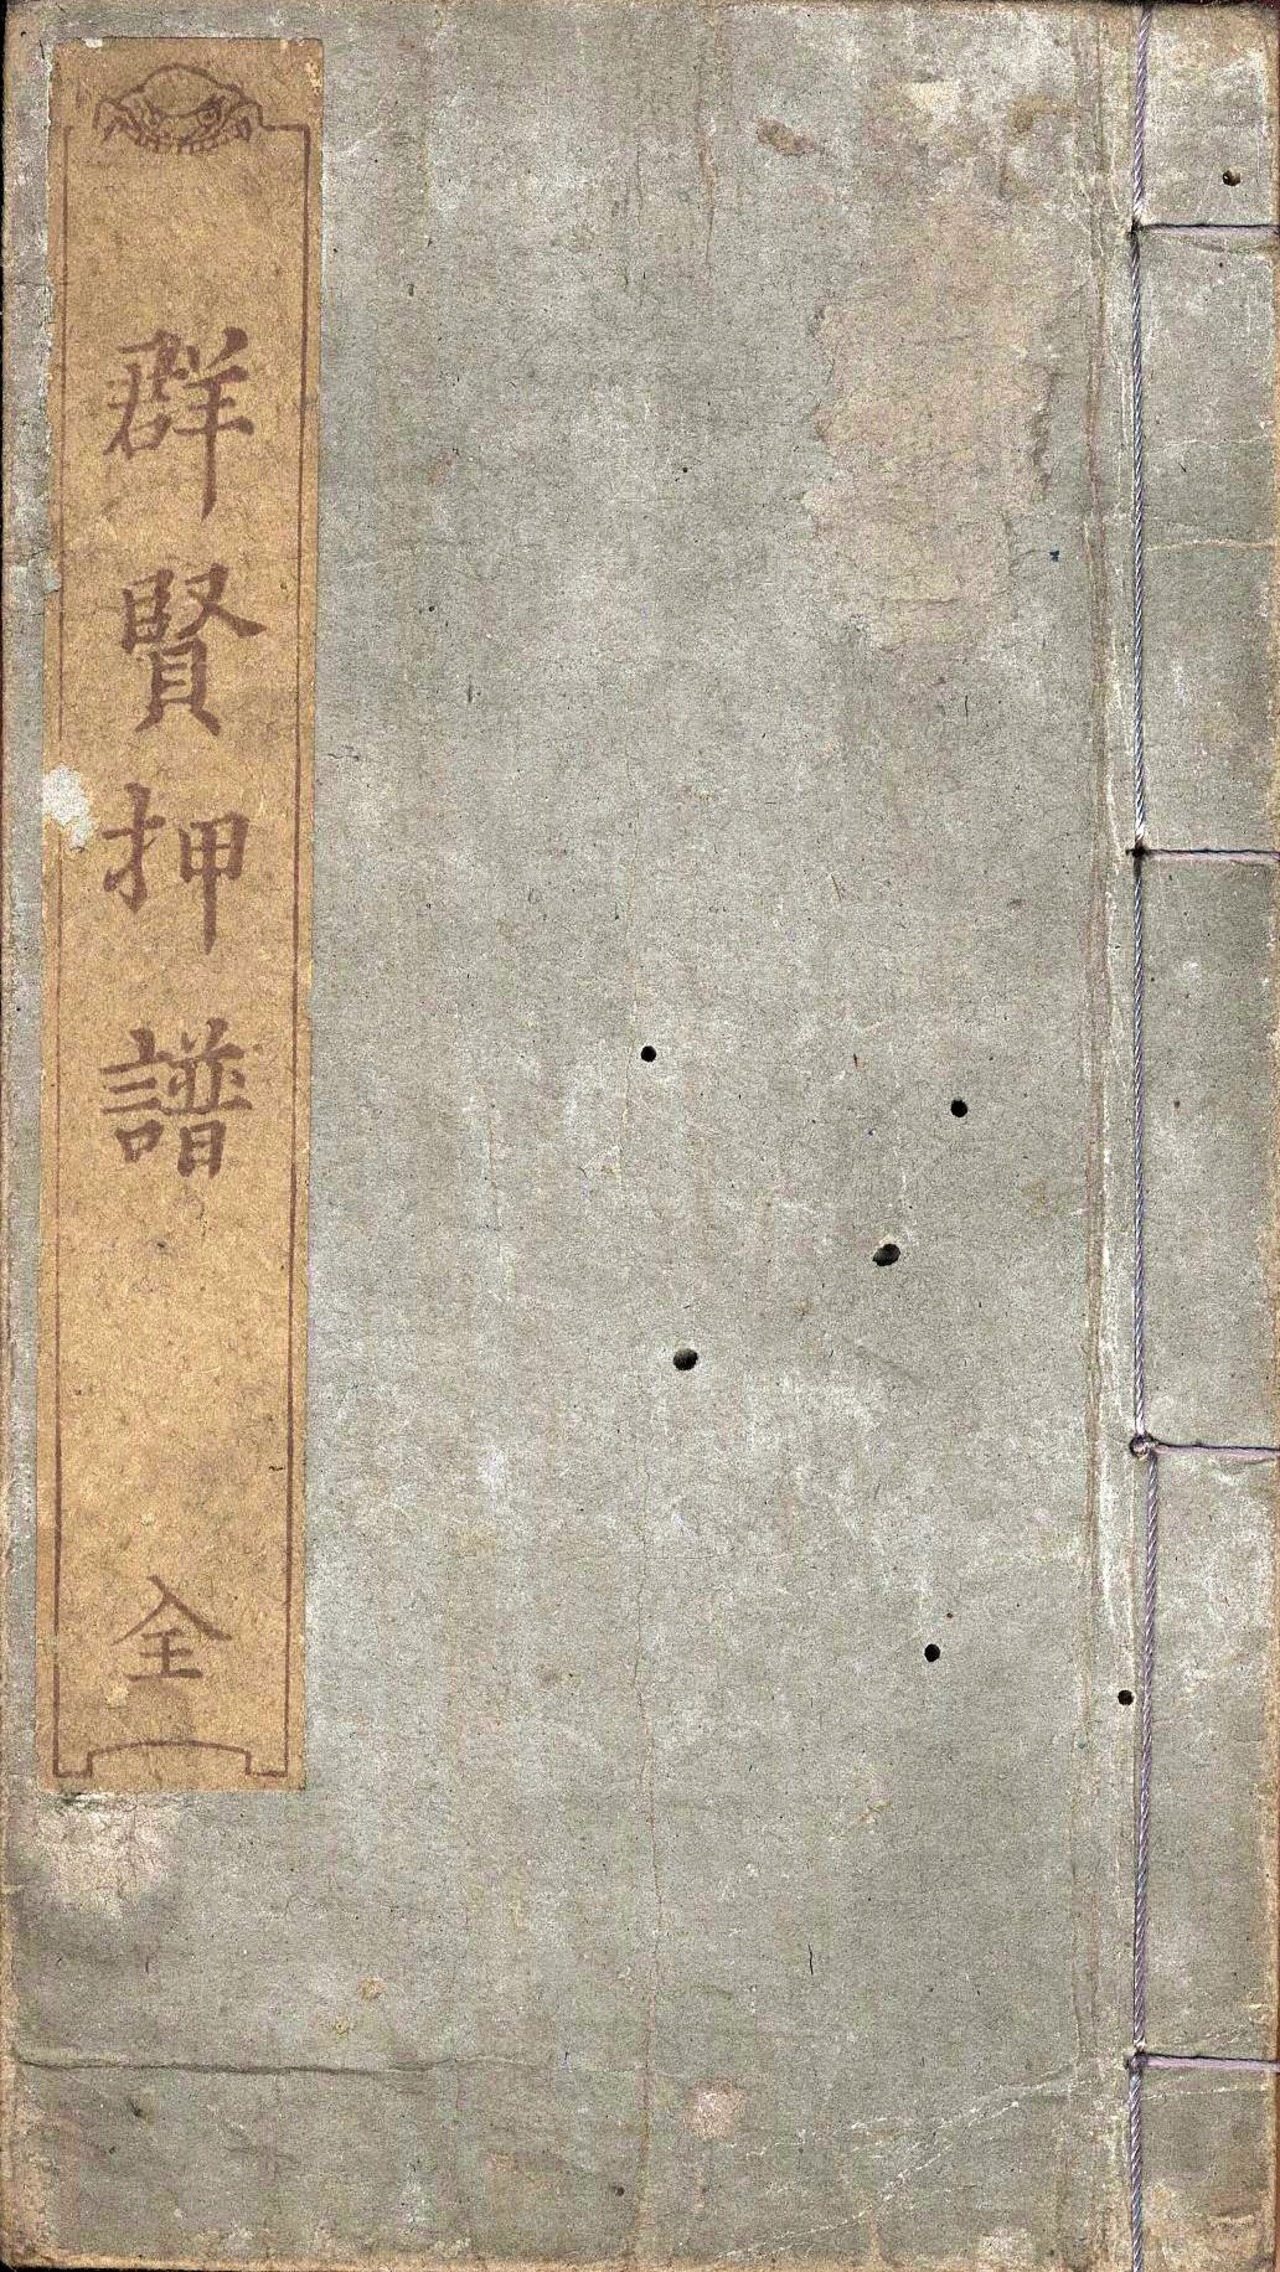 群賢押譜 全